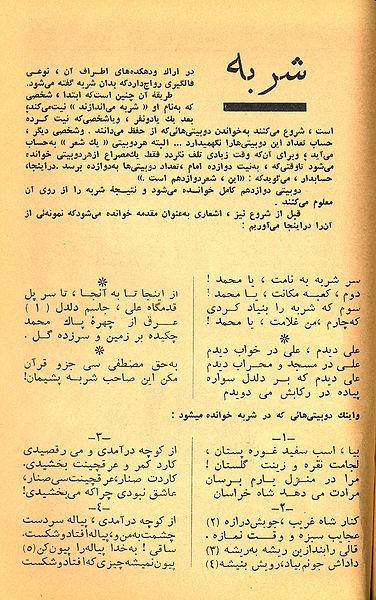 شربه
در اراك ودهكده‌های اطراف آن ، نوعی
فالگیری رواج‌داردکه بدان شربه گفته می‌شود.
طریقهٔ آن چنین است‌که ابتدا ، شخصی
که‌به‌نام او « شربه می‌اندازند » نیت‌می‌کند؛
بعد یك یادونفر ، ویاشخصی‌که نیت کرده
است ، شروع می‌کنند به‌خواندن دوبیتی‌هائی‌که از حفظ می‌دانند . وشخصی دیگر ،
حساب تعداد این دوبیتی‌هارا نگهمیدارد ... البته هردوبیتی « یك شعر » به‌حساب
می‌آید ؛ وبرای آن‌که وقت زیادی تلف نگردد فقط یك‌مصراع ازهردوبیتی خوانده
می‌شود تاوقتی‌که ، به‌نیت دوازده امام ،تعداد دوبیتی‌ها به‌دوازده برسد .دراینجا،
حسابدار ، می‌گوید،که : «این ، شعردوازدهم است .»
دوبیتی دوازدهم کامل خوانده می‌شود و نتیجهٔ شربه را از روی آن
معلوم می‌کنند .
قبل از شروع نیز ، اشعاری به‌عنوان مقدمه خوانده می‌شودکه نمونه‌ئی از
آن‌را دراینجا می‌آوریم :
سر شربه به نامت ، یا محمد !
دوم ، کعبه مکانت ، یا محمد !
سوم که شربه را بنیاد کردی
که‌چارم ،من غلامت ، یا محمد !
*
علی دیدم ، علی در خواب دیدم
علی در مسجد و محراب دیدم
علی دیدم که بر دلدل سواره
پیاده در رکابش می دویدم
*
از اینجا تا به آنجا ، تا سر پل
قدمگاه علی ، جاسم دلدل ( ۱ )
عرق از چهرهٔ پاك محمد
چکیده بر زمین و سرزده گل .
*
به‌حق مصطفی سی جزو قرآن
مکن این صاحب شربه پشیمان!
واینك دوبیتی‌هائی که در شربه خوانده میشود :
-۱-
بیا ، اسب سفید غوره پستان ،
لجامت نقره و زینت گلستان !
مرا در منزل یارم برسان
مرادت می دهد شاه خراسان
-۲-
کنار شاه غریب ، جویش‌درازه (۲)
عجایب سبزه و وقت نمازه .
قالی رابندازین ریشه به‌ریشه (۳)
داداش جونم‌بیاد،رویش بنیشه(۴)
-۳-
از کوچه درآمدی و می رقصیدی
کارد کمر و عرقچینت بخشیدی.
کاردت صنار،عرقچینت‌سی‌صنار،
عاشق نبودی چراکه می‌بخشیدی!
-۴-
از کوچه درآمدی ، پیاله سردست
چشمت‌به‌من‌و،پیاله‌افتادوشکست
ساقی ! به‌خدا! پیاله را پیون‌کن(۵)
پیون‌نمیشه‌چیزی‌که‌افتادوشکست